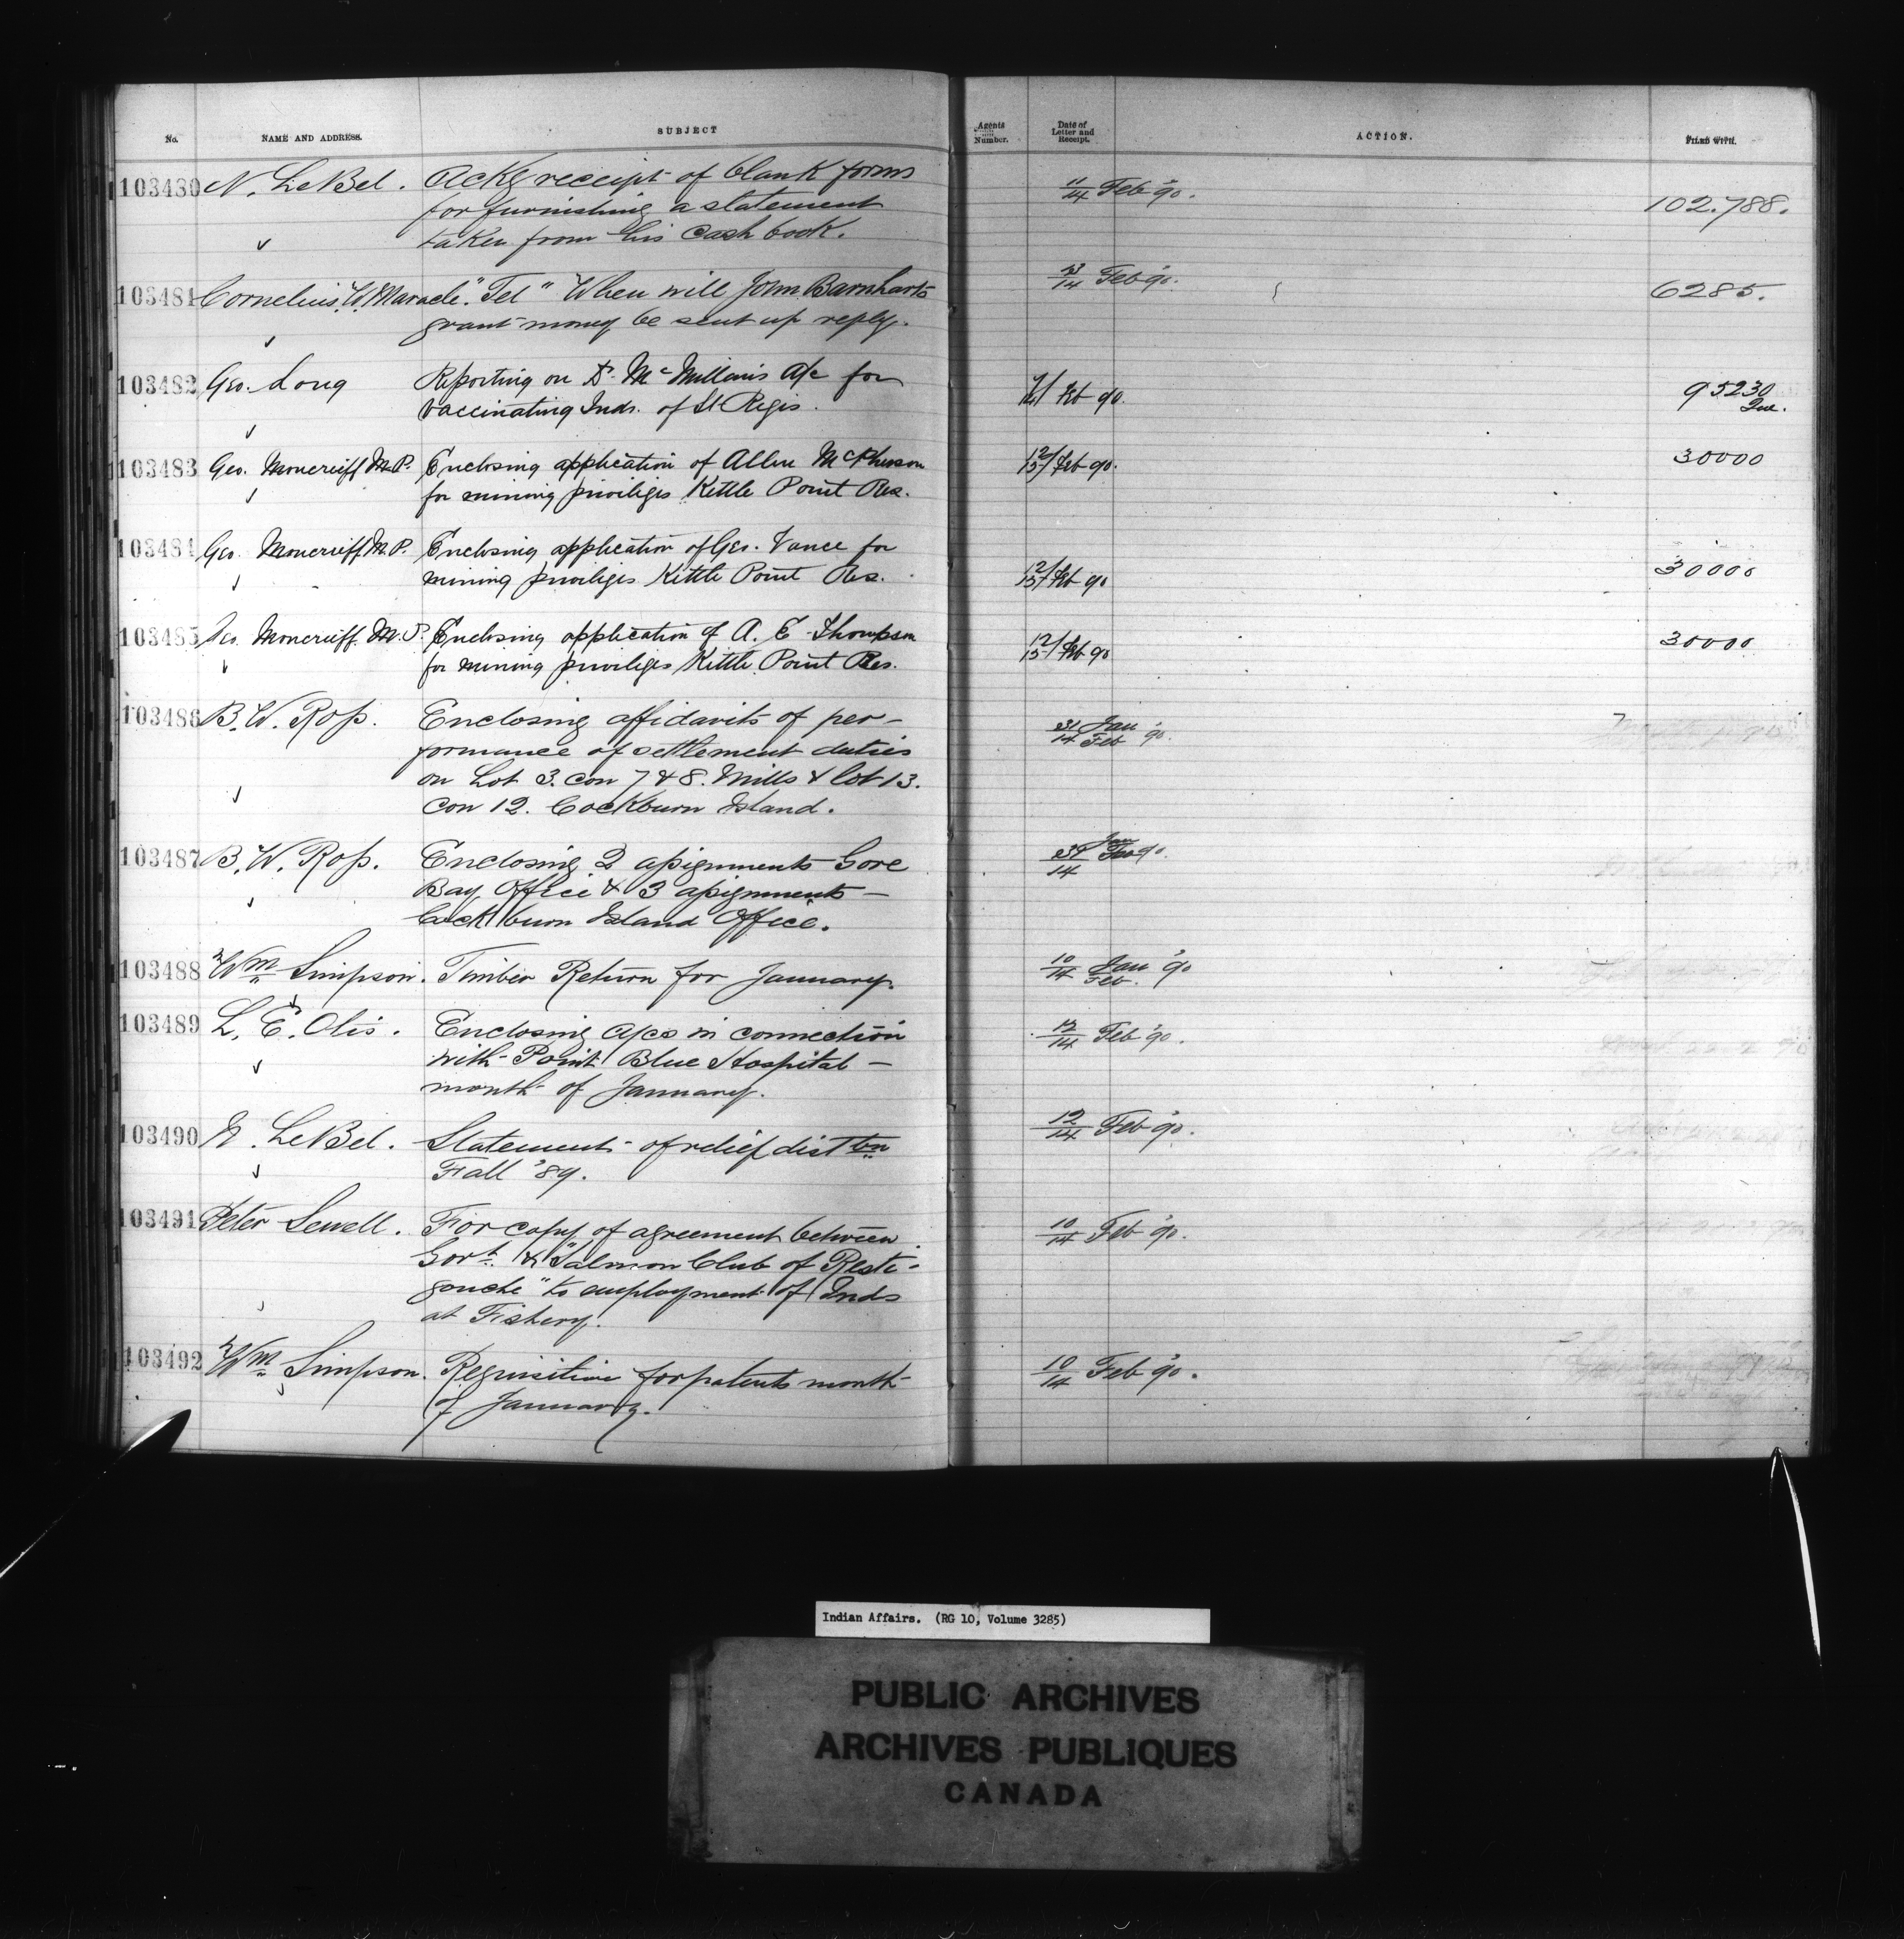 No. NAME AND ADDRESS. SUBJECT Agents Number. Date of Letter and Receipt. ACTION. FILED WITH.
103480 N. LeBel. Ackg receipt of blank forms 11/14 Feb '90. 102.788.
for furnishing a statement
taken from his cash book.
103481 Cornelius W. Maracle. "Tel" When will John Barnharts 13/14 Feb '90. 6285.
grant money be sent up reply.
103482 Geo. Long Reporting on Dr. McMillan's a/c for Feb 90. 95230
vaccinating Inds. of St Regis.
103483 Geo. Moncrieff M.P. Enclosing application of Allen McPherson 12/15 Feb 90. 30000
for mining priviliges Kettle Point Res.
103484 Geo. Moncrieff M.P. Enclosing application of Geo. Vance for 12/15 Feb 90 30000
mining priviliges Kettle Point Res.
103485 Geo. Moncrieff. M.P. Enclosing application of A. E. Thompson 12/15 Feb 90 30000
for mining priviliges Kettle Point Res.
103486 B. W. Ross. Enclosing affidavits of per- 31/14 Jan/Feb '90.
formance of settlement duties
on Lot 3. con 7 & 8. Mills & lot 13.
Con 12. Cockburn Island.
103487 B. W. Ross. Enclosing 2 assignments Gore 31/14 Jan 90.
Bay Office & 3 assignments -
Cockburn Island Office.
103488 Wm Simpson. Timber Return for January. 10/14 Jan/Feb. '90
103489 L. E. Otis. Enclosing a/cs in connection 12/14 Feb '90.
with Point Blue Hospital -
month of January.
103490 N. LeBel. Statement of relief dist tn 12/14 Feb '90.
Fall '89.
103491 Peter Sewell. For copy of agreement between 10/14 Feb '90.
Govt. & "Salmon Club of Resti-
gouche" to employment of Inds
at Fishery.
103492 Wm Simpson. Requisition for patents month 10/14 Feb '90.
of January.
Indian Affairs. (RG 10, Volume 3285)
PUBLIC ARCHIVES
ARCHIVES PUBLIQUES
CANADA